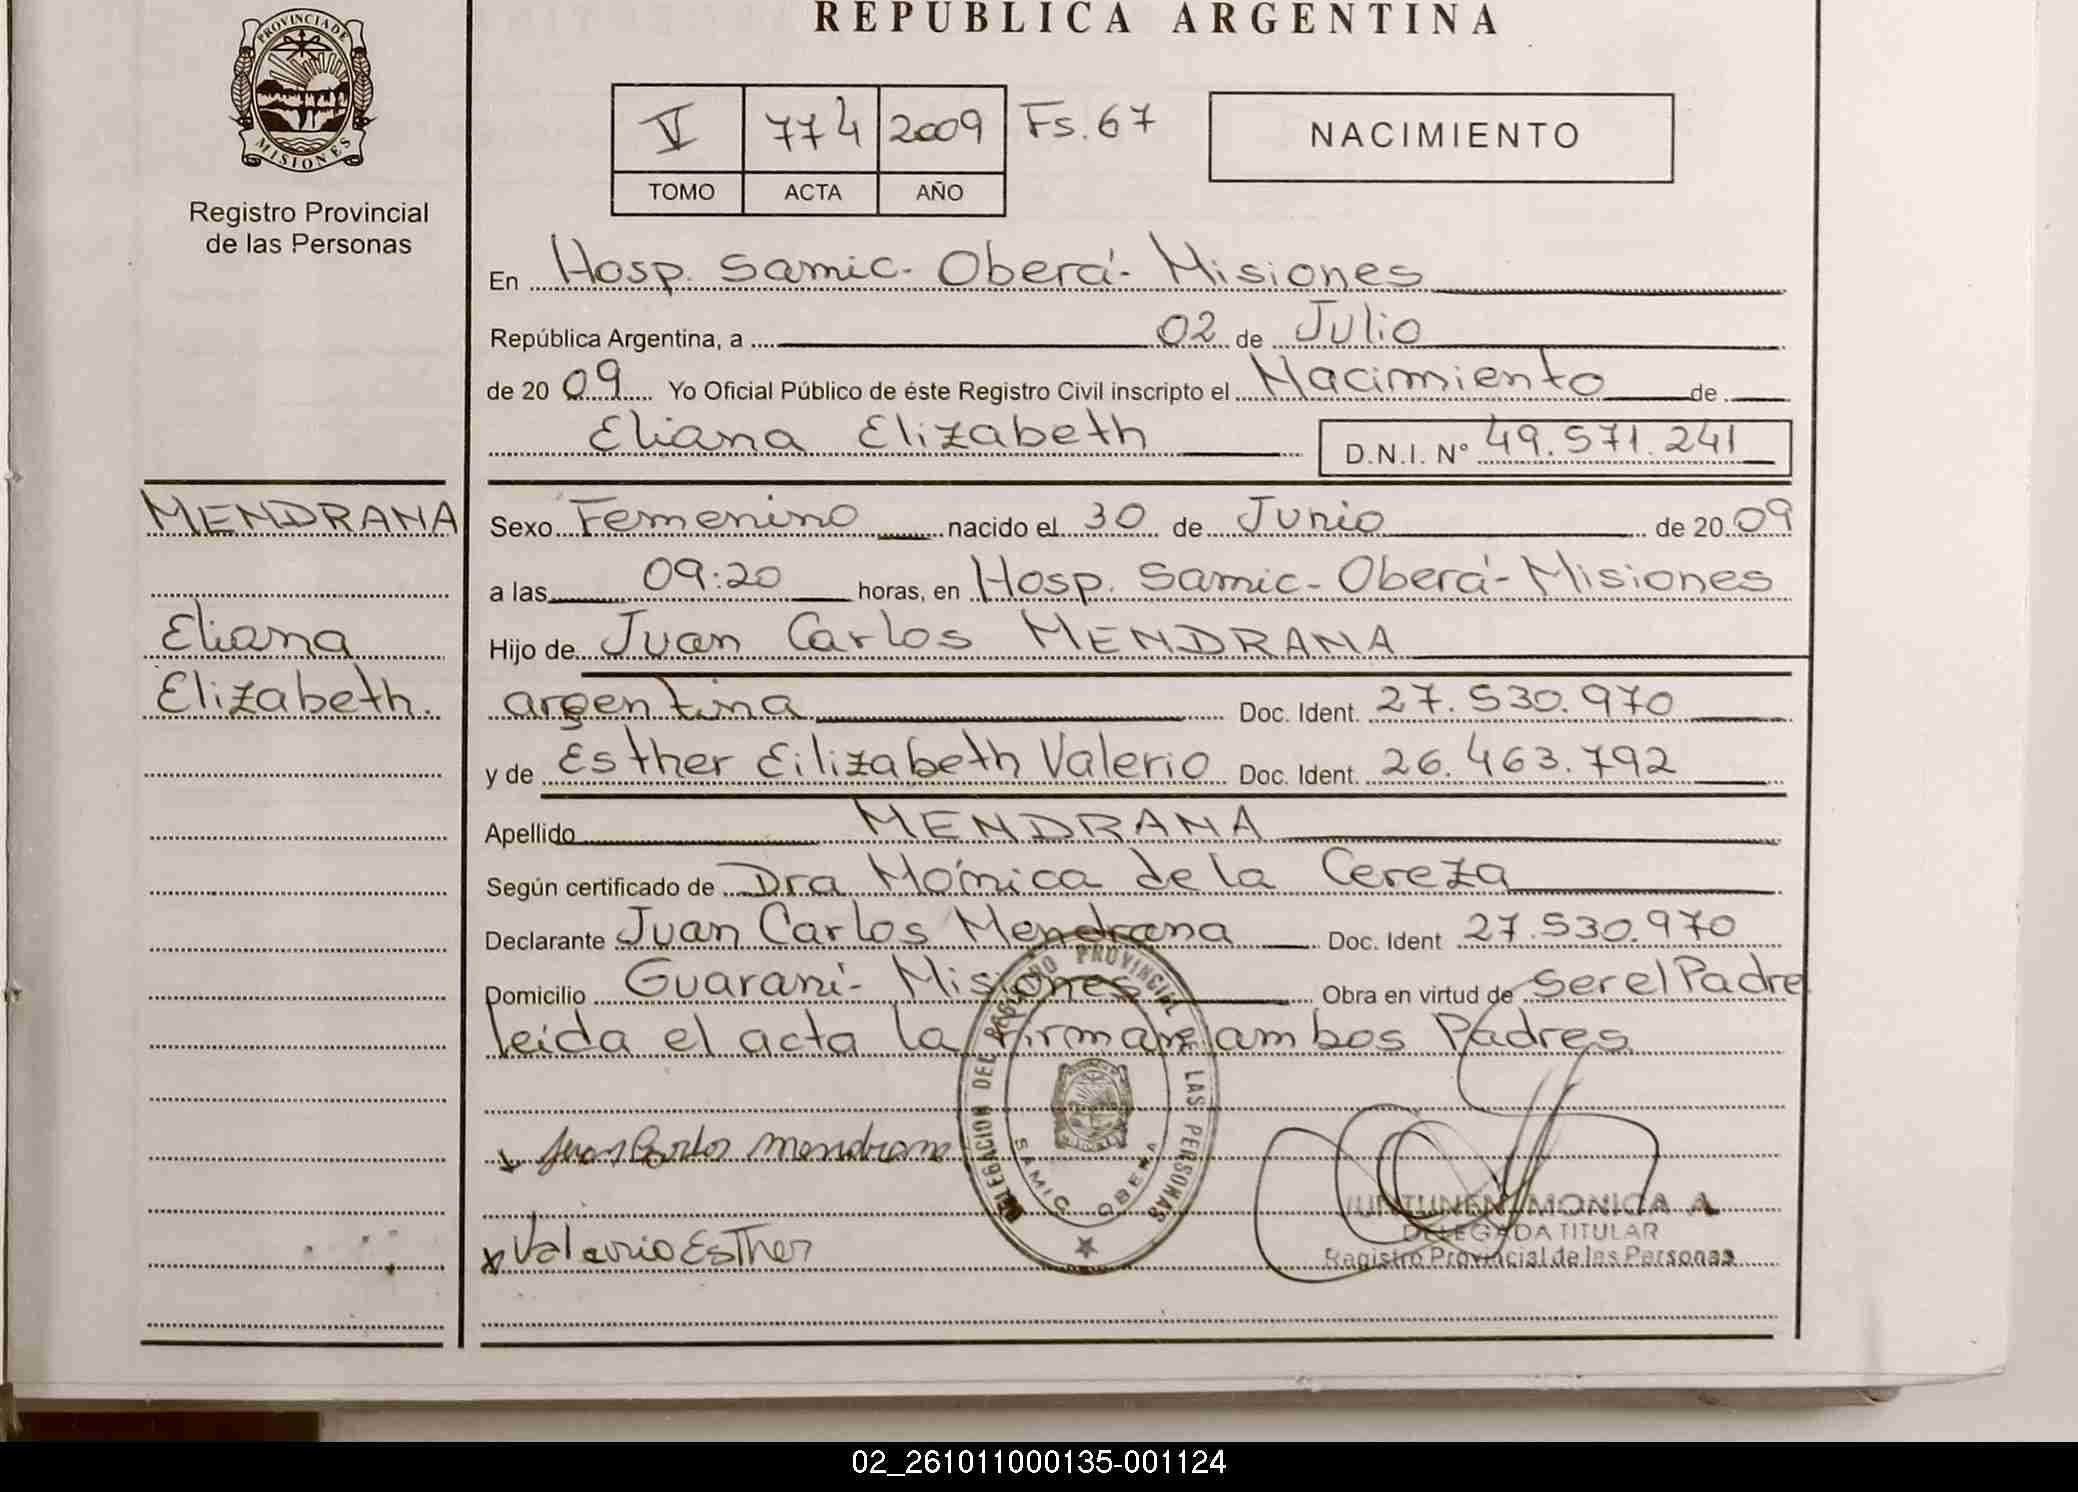 REPUBLICA ARGENTINA
PROVINCIA DE
MISIONES
Registro Provincial
de las Personas
V 774 2009 Fs. 67
TOMO ACTA AÑO
NACIMIENTO
En Hosp. Samic - Oberá - Misiones
República Argentina, a 02 de Julio
de 20 09 Yo Oficial Público de éste Registro Civil inscripto el Nacimiento de
Eliana Elizabeth D.N.I. Nº 49.571.241
MENDRANA
Eliana
Elizabeth.
Sexo Femenino nacido el 30 de Junio de 20 09
a las 09:20 horas, en Hosp. Samic - Oberá - Misiones
Hijo de Juan Carlos MENDRANA
argentina Doc. Ident. 27.530.970
y de Esther Eilizabeth Valerio Doc. Ident. 26.463.792
Apellido MENDRANA
Según certificado de Dra Mónica de la Cereza
Declarante Juan Carlos Mendrana Doc. Ident 27.530.970
Domicilio Guaraní - Misiones Obra en virtud de ser el Padre
leída el acta la firman ambos Padres
DELEGACION DEL REGISTRO PROVINCIAL DE LAS PERSONAS
SAMIC OBERA
Juan Carlos Mendrana
x Valerio Esther
MONICA A
DELEGADA TITULAR
Registro Provincial de las Personas
02_261011000135-001124